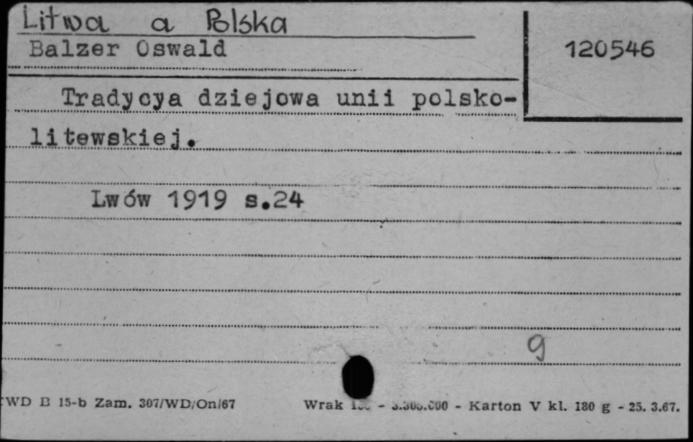 Litwa a Polska
Balzer Oswald
120546
Tradycya dziejowa unii polsko-
litewskiej.
Lwów 1919 s.24
9
WD B 15-b Zam. 307/WD/On/67
Wrak - Karton V kl. 180 g - 25. 3.67.